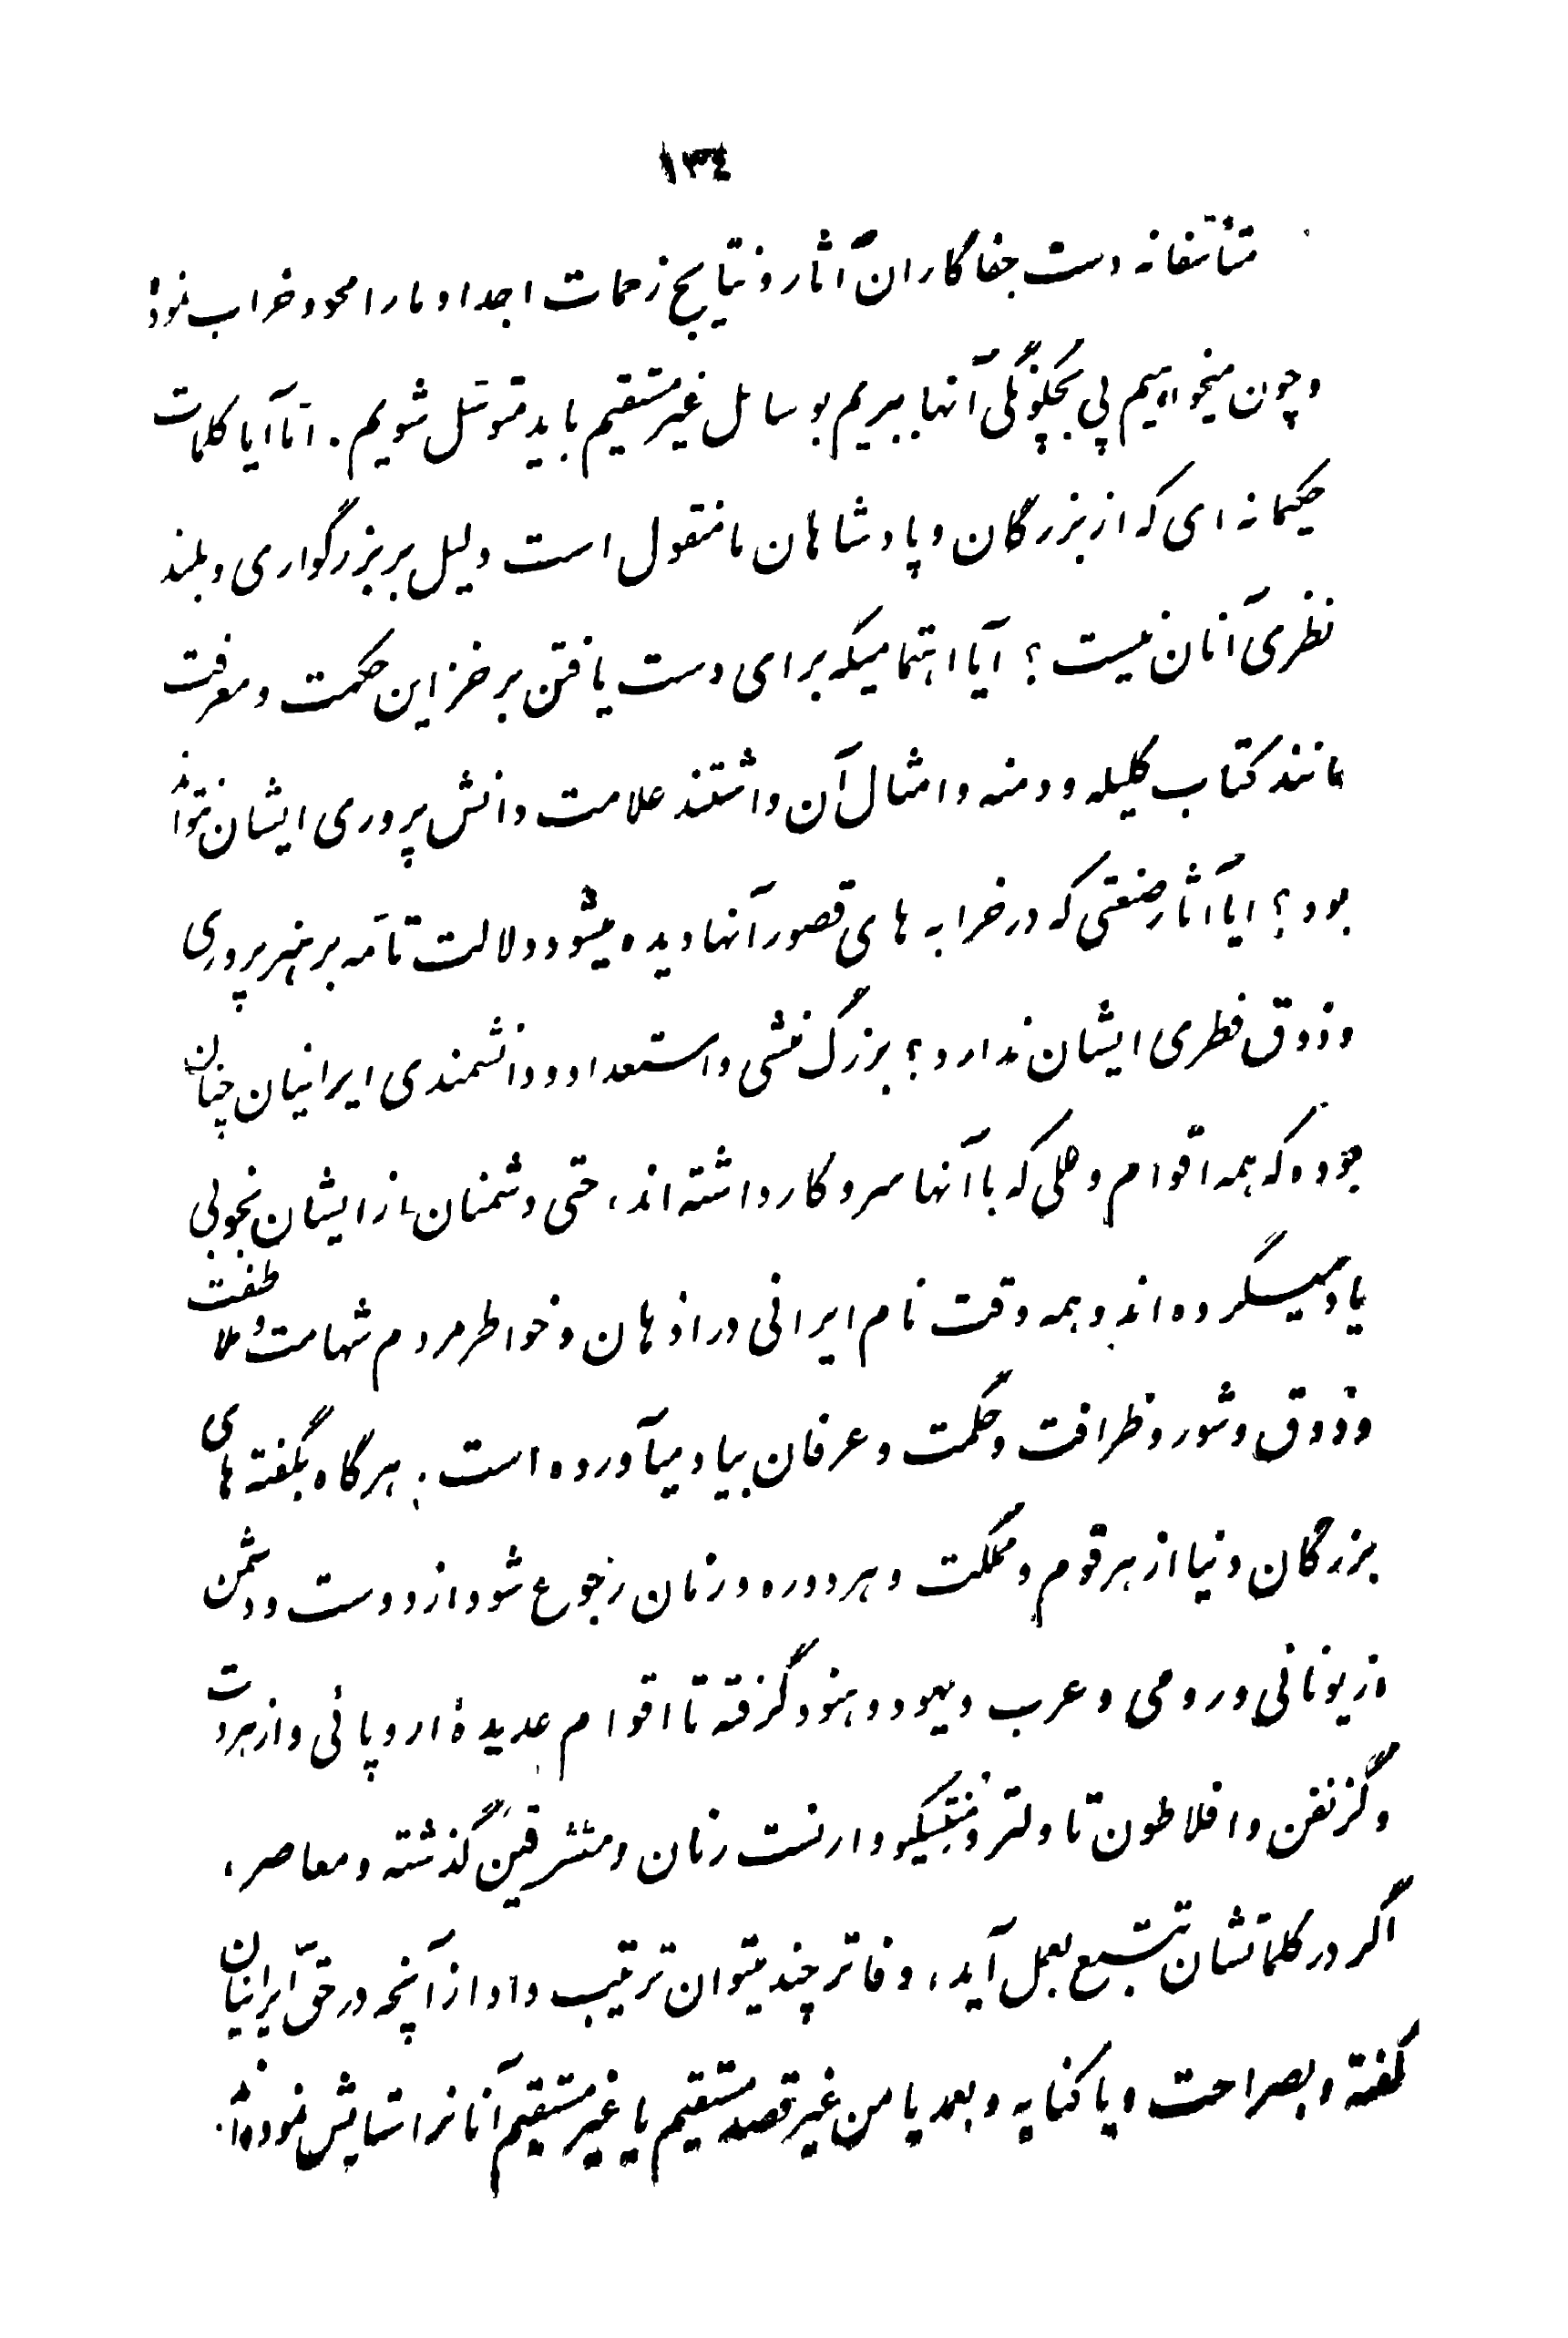 ١٣٤
متأسفانه دست جفاکاران آثار و نتایج زحمات اجداد ما را محو و خراب نموده
و چون میخواهیم پی بچگونگی آنها ببریم بوسایل غیر مستقیم باید متوسّل شویم. امّا آیا کلمات
حکیمانه‌ای که از بزرگان و پادشاهان ما منقول است دلیل بر بزرگواری و بلند
نظری آنان نیست؟ آیا اهتمامیکه برای دست یافتن بر خزاین حکمت و معرفت
مانند کتاب کلیله و دمنه و امثال آن داشتند علامت دانش پروری ایشان نتواند
بود؟ ایا آثار صنعتی که در خرابه های قصور آنها دیده میشود دلالت تامّه بر هنر پروری
و ذوق فطری ایشان ندارد؟ بزرگ منشی و استعداد و دانشمندی ایرانیان چنان
بوده که همه اقوام و مللی که با آنها سر و کار داشته اند، حتی دشمنان، از ایشان بخوبی
یاد میکرده‌اند و همه وقت نام ایرانی در اذهان و خواطر مردم شهامت و ملاطفت
و ذوق و شور و ظرافت و حکمت و عرفان بیاد میآورده است. هرگاه بگفته های
بزرگان دنیا از هر قوم و مملکت و هر دوره و زمان رجوع شود از دوست و دشمن
از یونانی و رومی و عرب و یهود و هنود گرفته تا اقوام جدیدهٔ اروپائی و از هردت
و گزنفن و افلاطون تا ولتر و منتسکیو و ارنست رنان و مستشرقین گذشته و معاصر،
اگر در کلماتشان تتبّع بعمل آید، دفاتر چند میتوان ترتیب داد از آنچه در حقّ ایرانیان
گفته و بصراحت و یا کنایه و بعمد یا من غیر قصد مستقیم یا غیر مستقیم آنانرا ستایش نموده‌اند.